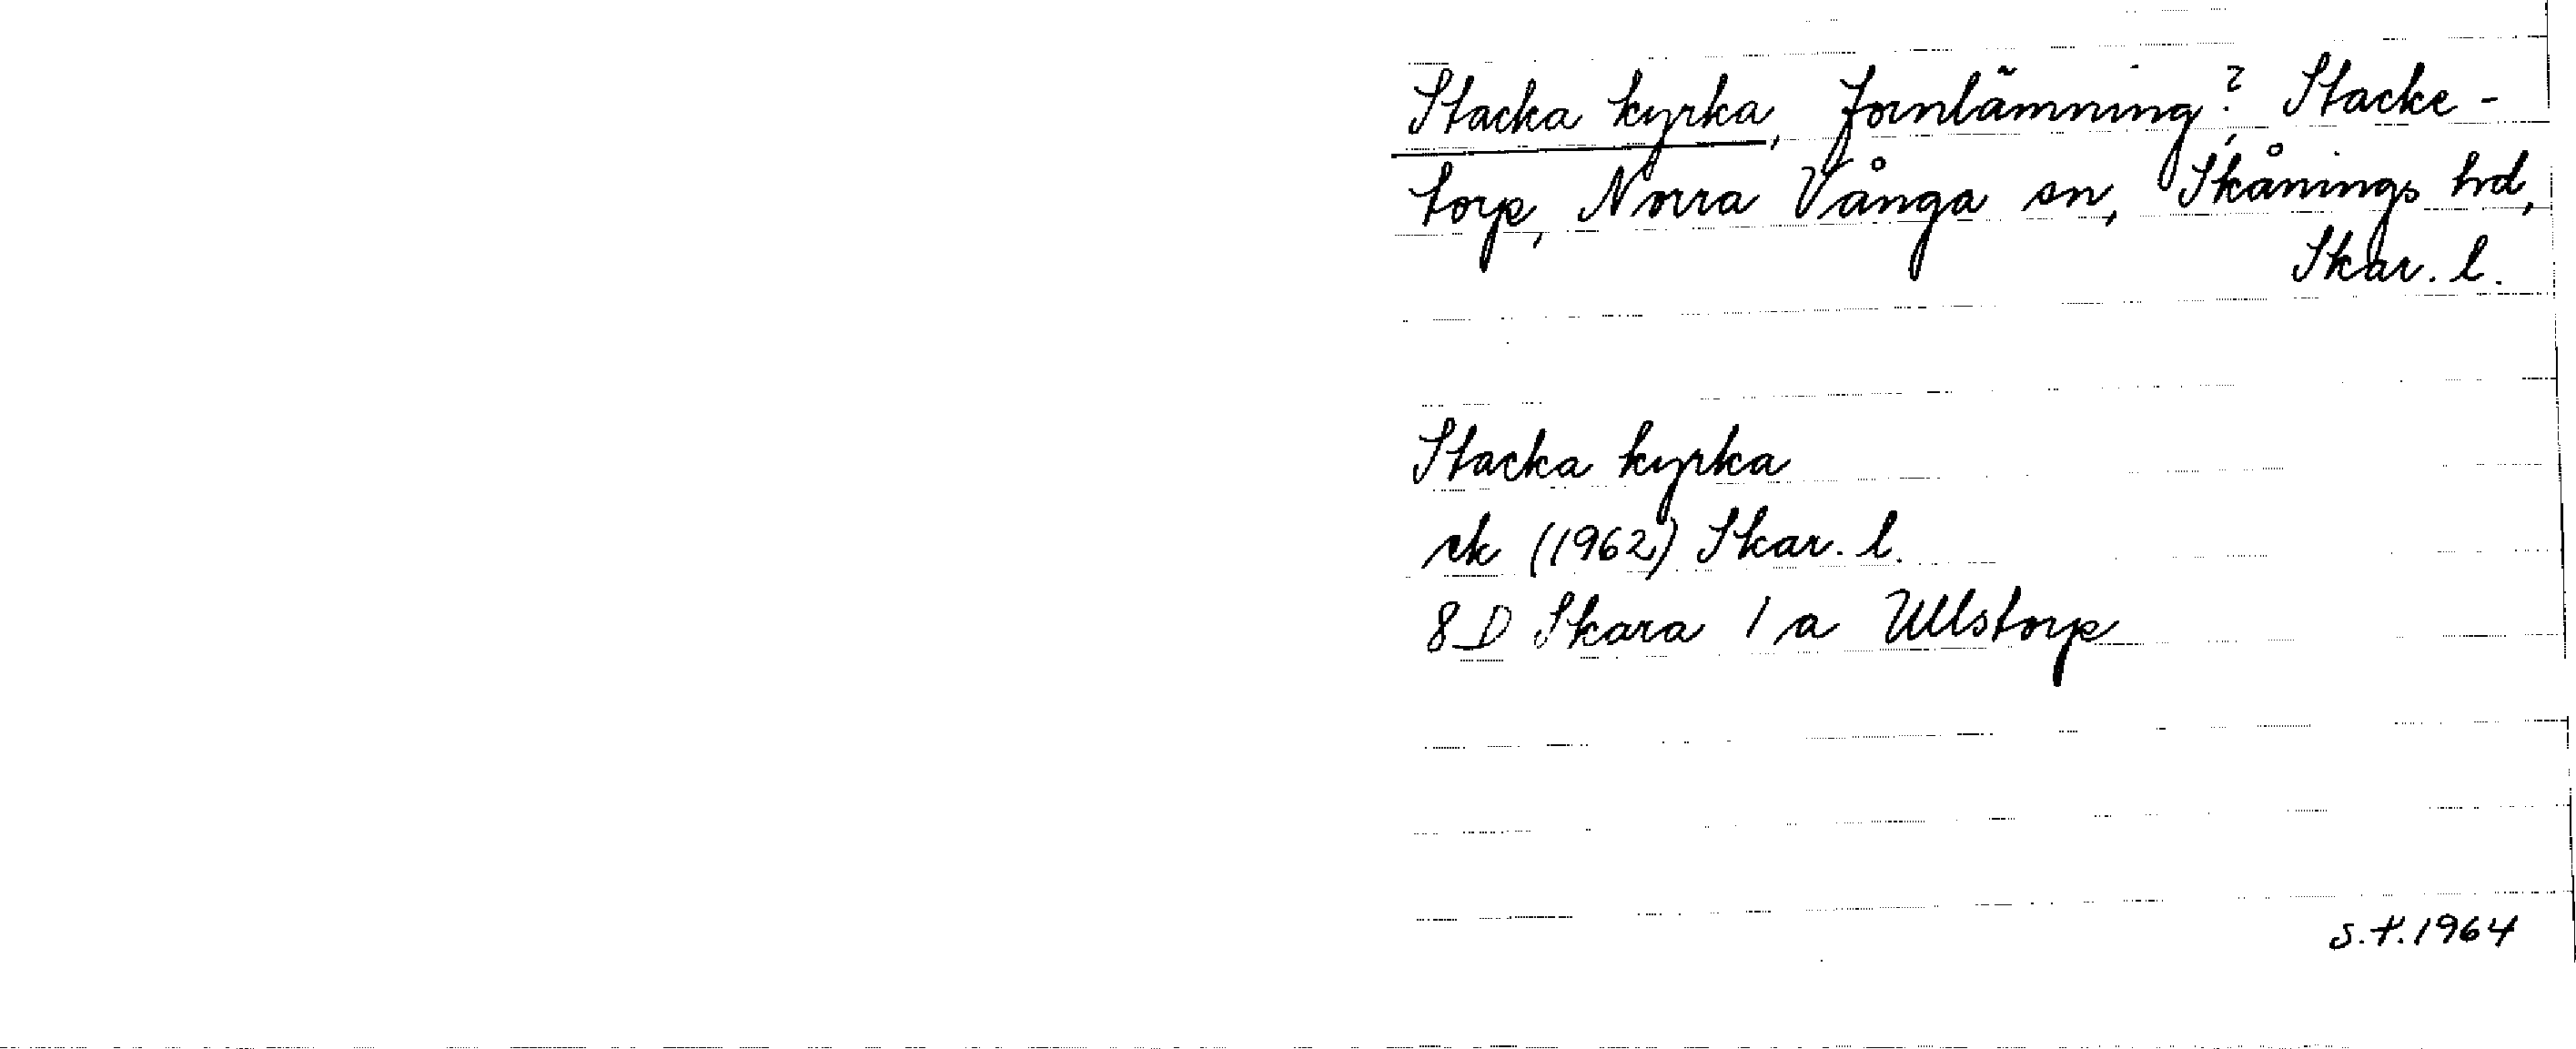 Stacka kyrka, fornlämning?, Stacke-
torp, Norra Vånga sn, Skånings hd,
Skar. l.
Stacka kyrka
rk (1962) Skar. l.
8 D Skara 1 a Ullstorp
S.H.1964